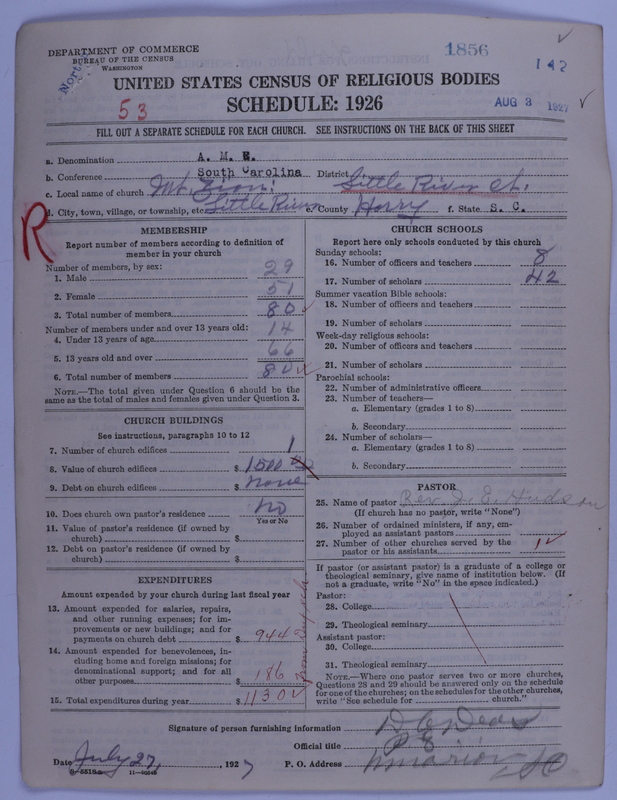 DEPARTMENT OF COMMERCE
BUREAU OF THE CENSUS
WASHINGTON
North
1856
142
53
UNITED STATES CENSUS OF RELIGIOUS BODIES
SCHEDULE: 1926
AUG 3 1927
FILL OUT A SEPARATE SCHEDULE FOR EACH CHURCH. SEE INSTRUCTIONS ON THE BACK OF THIS SHEET
a. Denomination A. M. E.
b. Conference South Carolina District
c. Local name of church Mt. Zion Little River ct.
d. City, town, village, or township, etc. Little River e. County Horry f. State S. C.
R
MEMBERSHIP
Report number of members according to definition of
member in your church
Number of members, by sex:
1. Male 29
2. Female 51
3. Total number of members 80
Number of members under and over 13 years old:
4. Under 13 years of age 14
5. 13 years old and over 66
6. Total number of members 80
NOTE.—The total given under Question 6 should be the
same as the total of males and females given under Question 3.
CHURCH BUILDINGS
See instructions, paragraphs 10 to 12
7. Number of church edifices 1
8. Value of church edifices $ 1500
9. Debt on church edifices $ none
10. Does church own pastor's residence No
Yes or No
11. Value of pastor's residence (if owned by
church) $
12. Debt on pastor's residence (if owned by
church) $
EXPENDITURES
Amount expended by your church during last fiscal year
13. Amount expended for salaries, repairs,
and other running expenses; for im-
provements or new buildings; and for
payments on church debt $ 944
14. Amount expended for benevolences, in-
cluding home and foreign missions; for
denominational support; and for all
other purposes $ 186
15. Total expenditures during year $ 1130
CHURCH SCHOOLS
Report here only schools conducted by this church
Sunday schools:
16. Number of officers and teachers 8
17. Number of scholars 42
Summer vacation Bible schools:
18. Number of officers and teachers
19. Number of scholars
Week-day religious schools:
20. Number of officers and teachers
21. Number of scholars
Parochial schools:
22. Number of administrative officers
23. Number of teachers—
a. Elementary (grades 1 to 8)
b. Secondary
24. Number of scholars—
a. Elementary (grades 1 to 8)
b. Secondary
PASTOR
25. Name of pastor Rev. Hudson
(If church has no pastor, write "None")
26. Number of ordained ministers, if any, em-
ployed as assistant pastors
27. Number of other churches served by the
pastor or his assistants 1
If pastor (or assistant pastor) is a graduate of a college or
theological seminary, give name of institution below. (If
not a graduate, write "No" in the space indicated.)
Pastor:
28. College
29. Theological seminary
Assistant pastor:
30. College
31. Theological seminary
NOTE.—Where one pastor serves two or more churches,
Questions 28 and 29 should be answered only on the schedule
for one of the churches; on the schedules for the other churches,
write "See schedule for church."
Signature of person furnishing information
Official title P. E.
Date July 27, 1927 P. O. Address Marion SC
8-5518a 11-9054b